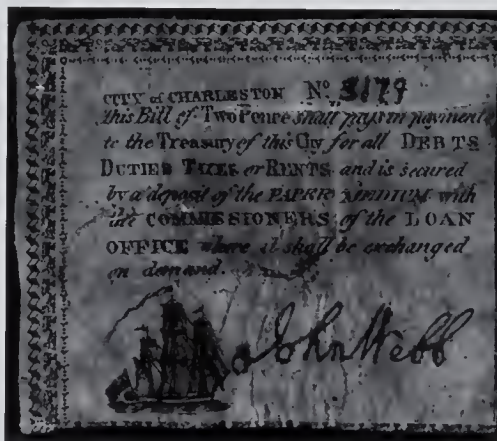 CITY of CHARLESTON No. 3179
this Bill of Two Pence shall pass in payment
to the Treasury of this City for all DEBTS
DUTIES TAXES or RENTS and is secured
by a deposit of the PAPER MEDIUM with
the COMMISSIONERS of the LOAN
OFFICE where it shall be exchanged
on demand.
John Webb